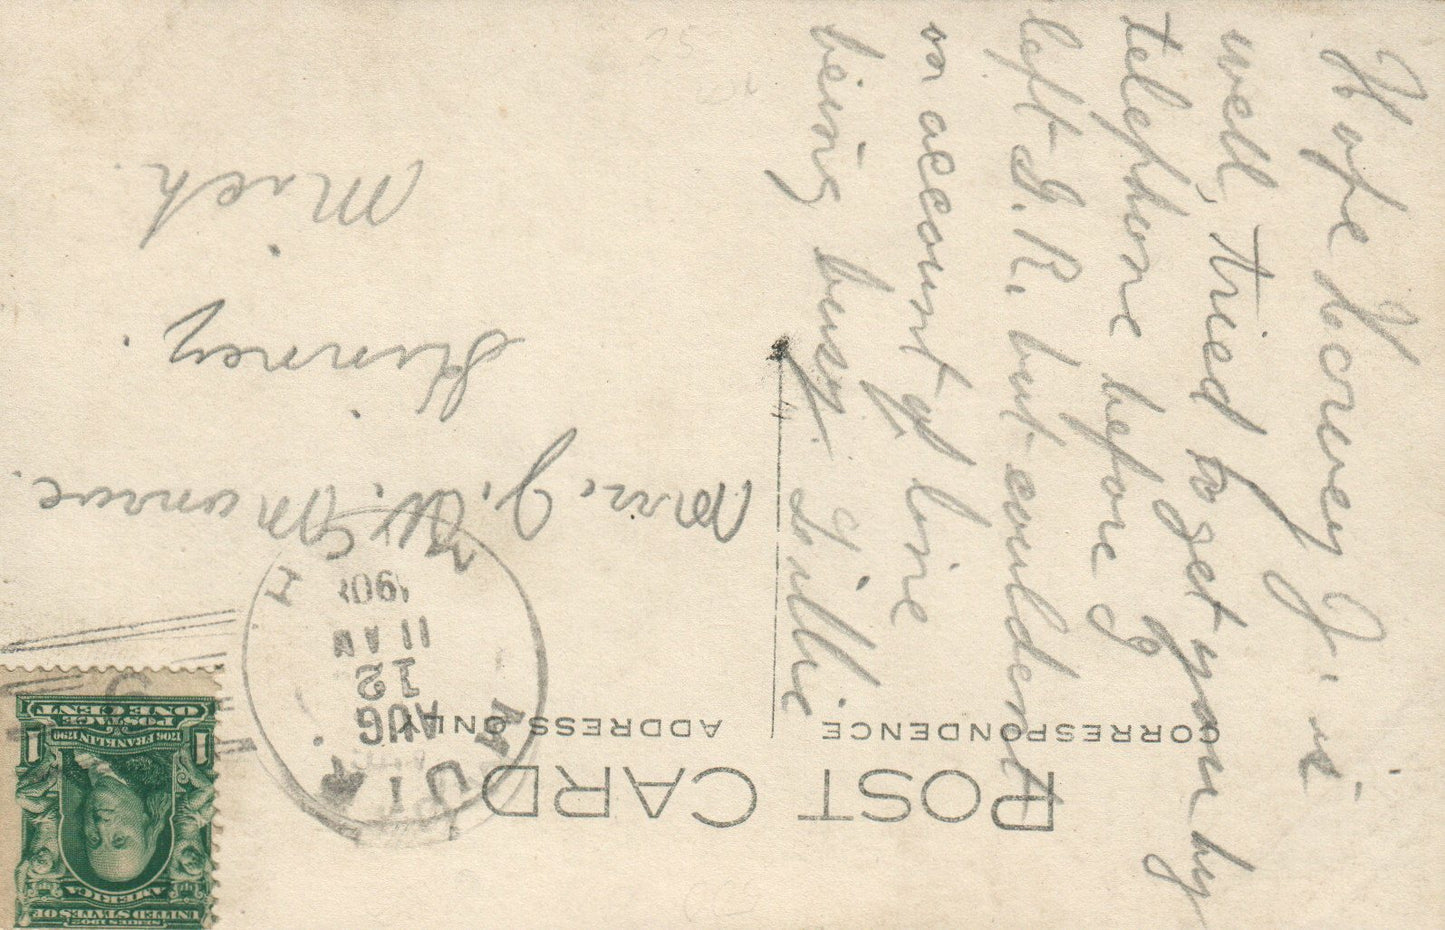 POST CARD
CORRESPONDENCE
ADDRESS ONLY
Hope Dcorvey J. is
well, tried to get you by
telephone before I
left G.R. but couldent
on account of line
being busy. Lillie
Mrs. J. W. Monroe.
Mich.
AUG
12
11 AM
190
SERIES 1902
UNITED STATES OF
AMERICA
1706 FRANKLIN 1790
POSTAGE
ONE CENT
1 1